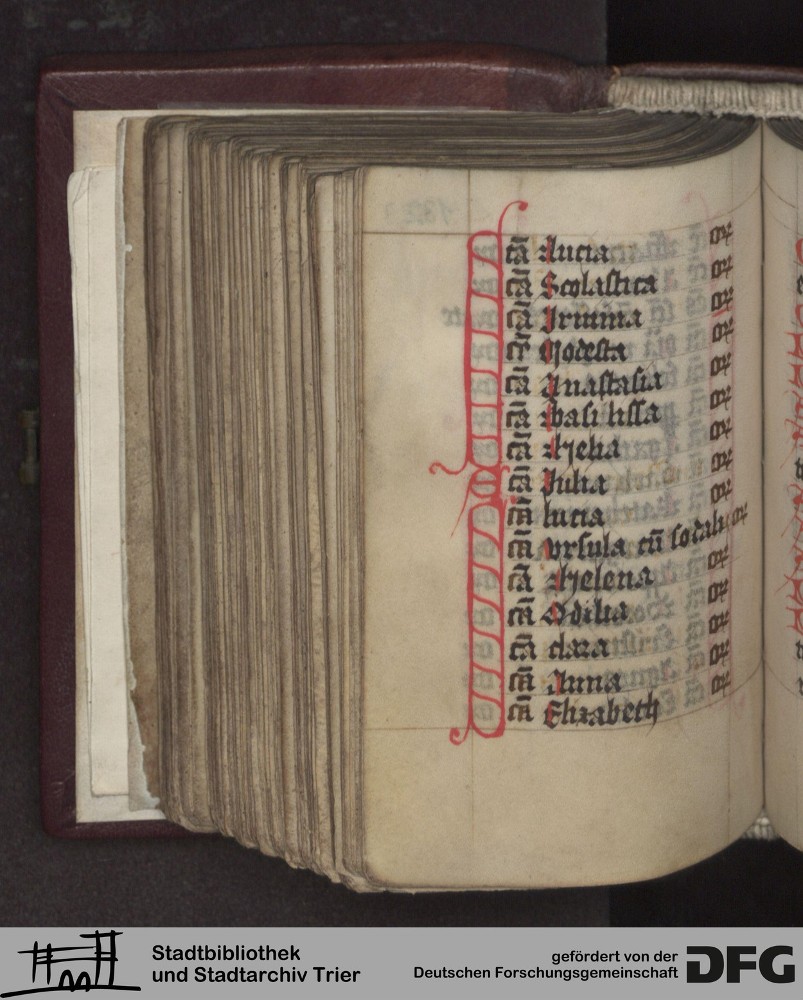 cā Lucia or
cā Scolastica or
cā Irmina or
cā Modesta or
cā Anastasia or
cā Basilissa or
cā Helia or
cā Julia or
cā lucia or
cā vrsula cū sodalib; or
cā Helena or
cā Odilia or
cā clara or
cā Anna or
cā Elizabeth
Stadtbibliothek
und Stadtarchiv Trier
gefördert von der
Deutschen Forschungsgemeinschaft
DFG